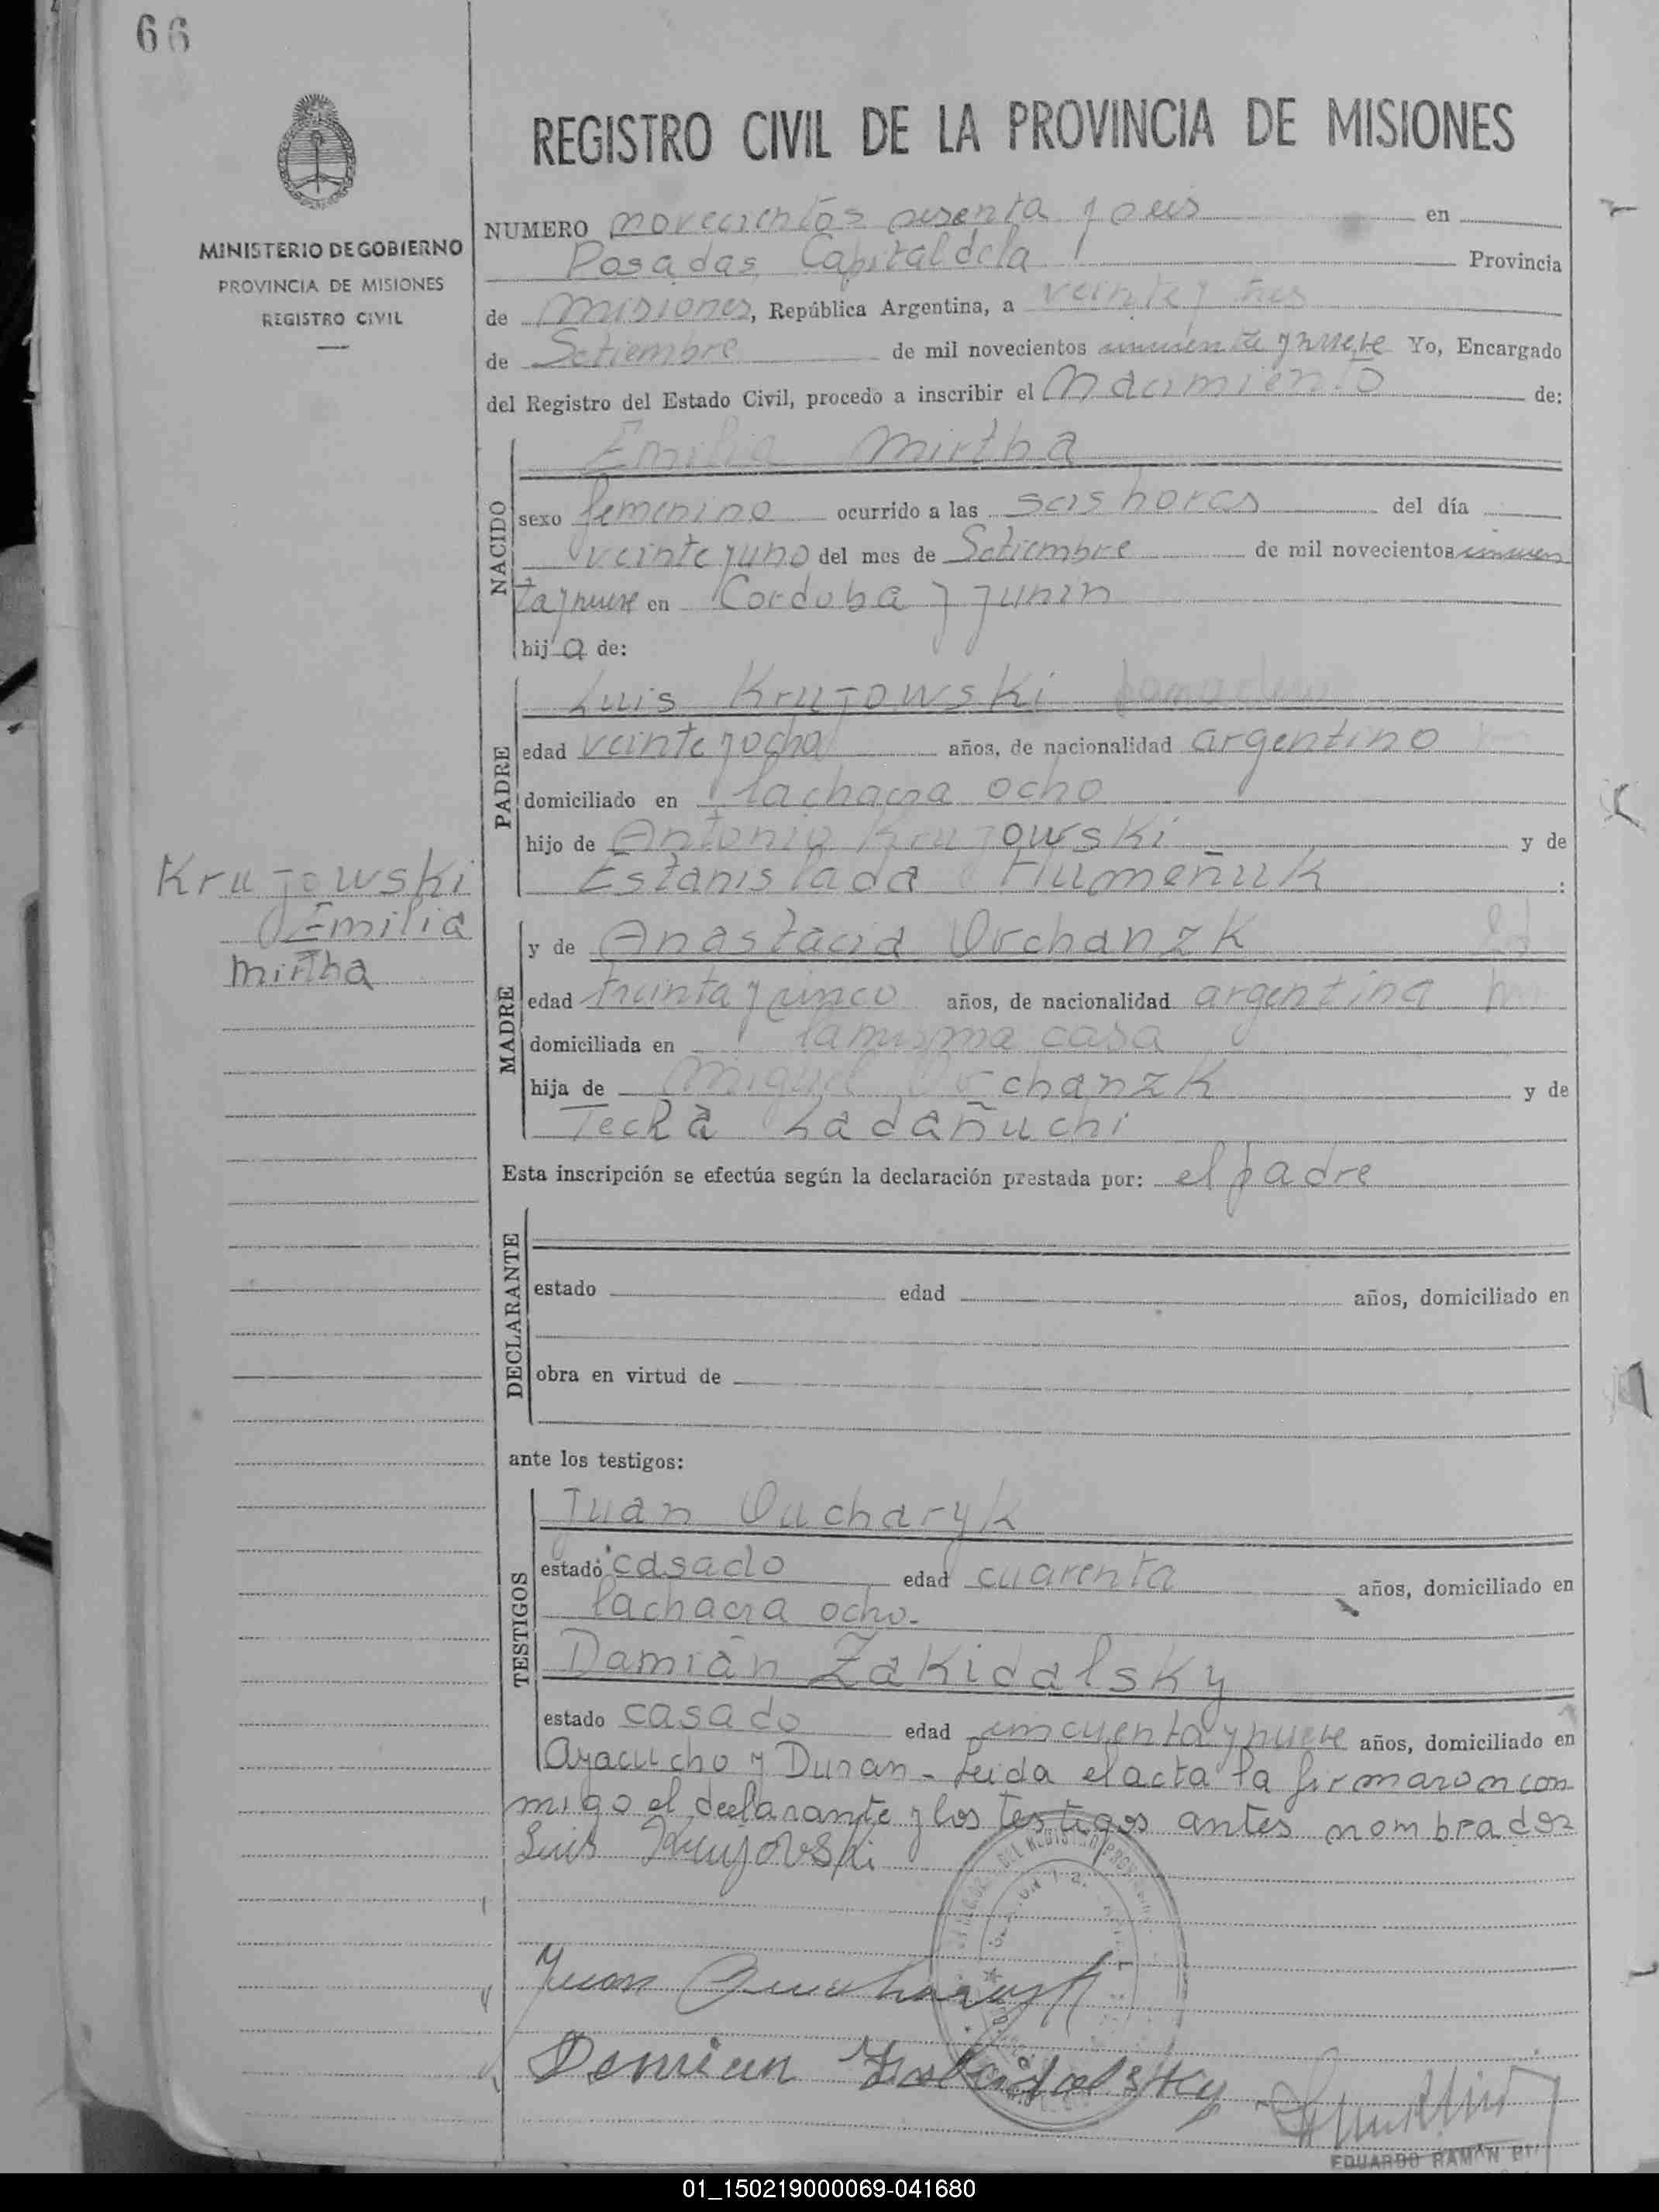 66
REGISTRO CIVIL DE LA PROVINCIA DE MISIONES
MINISTERIO DE GOBIERNO
PROVINCIA DE MISIONES
REGISTRO CIVIL
NUMERO novecientos sesenta y seis en
Posadas, Capital de la Provincia
de Misiones, República Argentina, a veinte y tres
de Setiembre de mil novecientos cincuenta y nueve Yo, Encargado
del Registro del Estado Civil, procedo a inscribir el Nacimiento de:
NACIDO
Emilia Mirtha
sexo femenino ocurrido a las seis horas del día
veinte y uno del mes de Setiembre de mil novecientos cincuen
ta y nueve en Cordoba y Junin
hija de:
PADRE
Luis Krujowski
edad veinte y ocho años, de nacionalidad argentino
domiciliado en la chacra ocho
hijo de Antonio Krujowski y de
Estanislada Humeñuk :
Krujowski
Emilia
Mirtha
MADRE
y de Anastacia Orchanzk
edad treinta y cinco años, de nacionalidad argentina
domiciliada en la misma casa
hija de Miguel Orchanzk y de
Tecla Ladañuchi
Esta inscripción se efectúa según la declaración prestada por: el padre
DECLARANTE
estado edad años, domiciliado en
obra en virtud de
ante los testigos:
TESTIGOS
Juan Oucharyk
estado casado edad cuarenta años, domiciliado en
la chacra ocho.
Damián Zakidalsky
estado casado edad cincuenta y nueve años, domiciliado en
Ayacucho y Duran - Leida el acta la firmaron con
migo el declarante y los testigos antes nombrados
Luis Krujovski
Juan Oucharyk
Demian Zakidalsky
EDUARDO RAMÓN
01_150219000069-041680